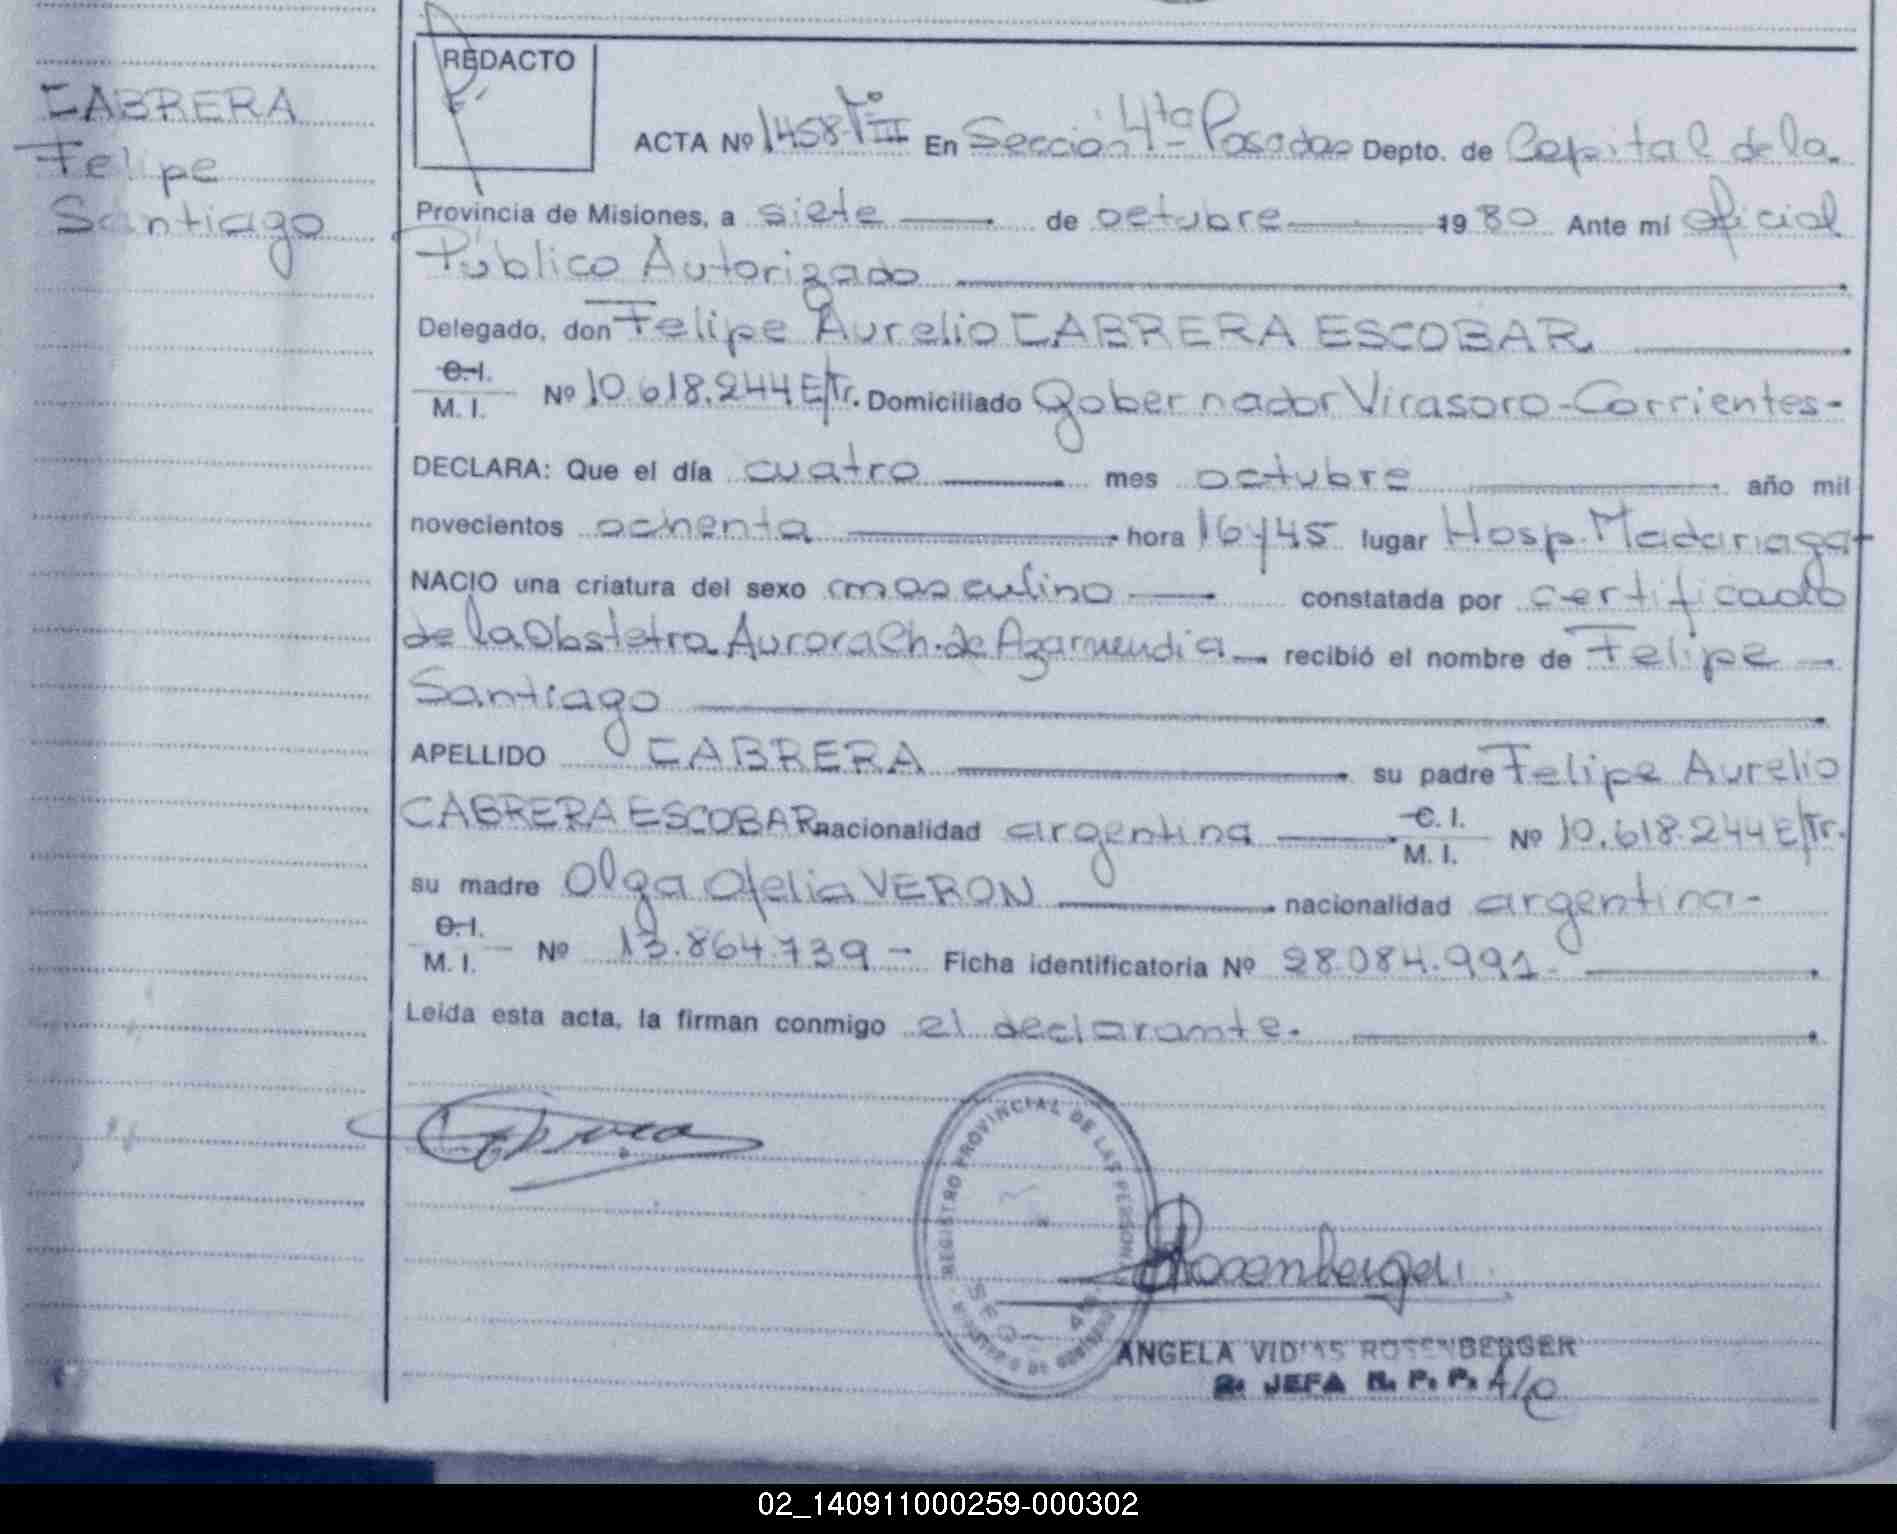 CABRERA
Felipe
Santiago
REDACTO
ACTA Nº 1458 Tº III En Sección 4ta Posadas Depto. de Capital de la
Provincia de Misiones, a siete de octubre 1980 Ante mí oficial
Público Autorizado
Delegado, don Felipe Aurelio CABRERA ESCOBAR
C.I.
M. I. Nº 10.618.244 E/Tr. Domiciliado Gobernador Virasoro-Corrientes-
DECLARA: Que el día cuatro mes octubre año mil
novecientos ochenta hora 16y45 lugar Hosp. Madariaga
NACIO una criatura del sexo masculino constatada por certificado
de la Obstetra Aurora Ch. de recibió el nombre de Felipe
Santiago
APELLIDO CABRERA su padre Felipe Aurelio
CABRERA ESCOBAR nacionalidad argentina C. I.
M. I. Nº 10.618.244 E/Tr.
su madre Olga Ofelia VERON nacionalidad argentina-
C.I.
M. I. Nº 13.864.739 - Ficha identificatoria Nº 28.084.991.
Leída esta acta, la firman conmigo el declarante.
REGISTRO PROVINCIAL DE LAS PERSONAS
Rosenberger
ANGELA ROSENBERGER
2. JEFA R. P. P. A/C
02_140911000259-000302